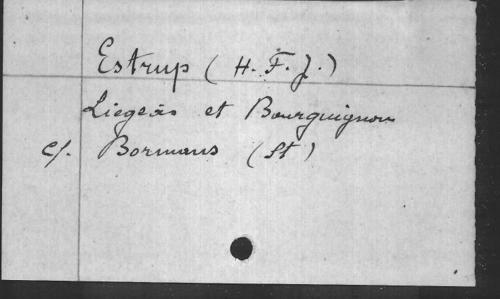 Estrup (H. F. J.)
Liegeois et Bourguignons
Cf. Bormans (St)